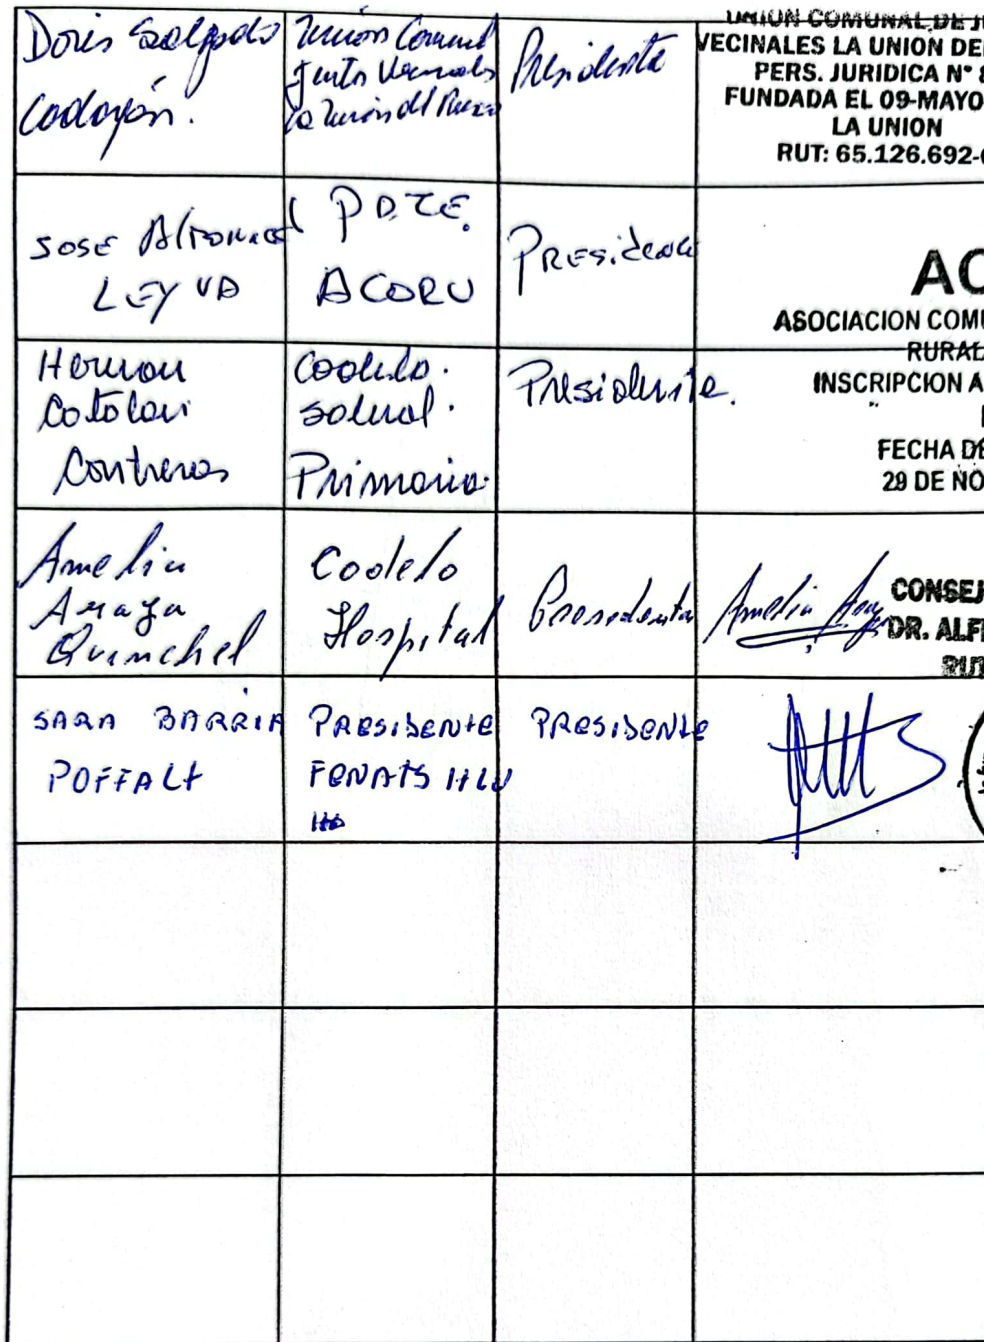 Doris Salgado
Codoyán.
Unión Comunal
Juntas Vecinales
La Unión del Ranco
Presidenta
UNION COMUNAL DE J
VECINALES LA UNION DE
PERS. JURIDICA N° 8
FUNDADA EL 09-MAYO-
LA UNION
RUT: 65.126.692-
JOSE
LEYVA
PDTE.
ACORU
Presidente
AC
ASOCIACION COMU
RURAL
INSCRIPCION A
FECHA DE
29 DE NO
Hernan
Catalan
Contreras
Codelo.
Salud.
Primaria.
Presidente.
Amelia
Araya
Quinchel
Codelo
Hospital
Presidenta
Amelia Araya
CONSEJ
DR. ALF
RUT
SARA BARRIA
POFFALT
PRESIDENTE
FENATS HLU
PRESIDENTE